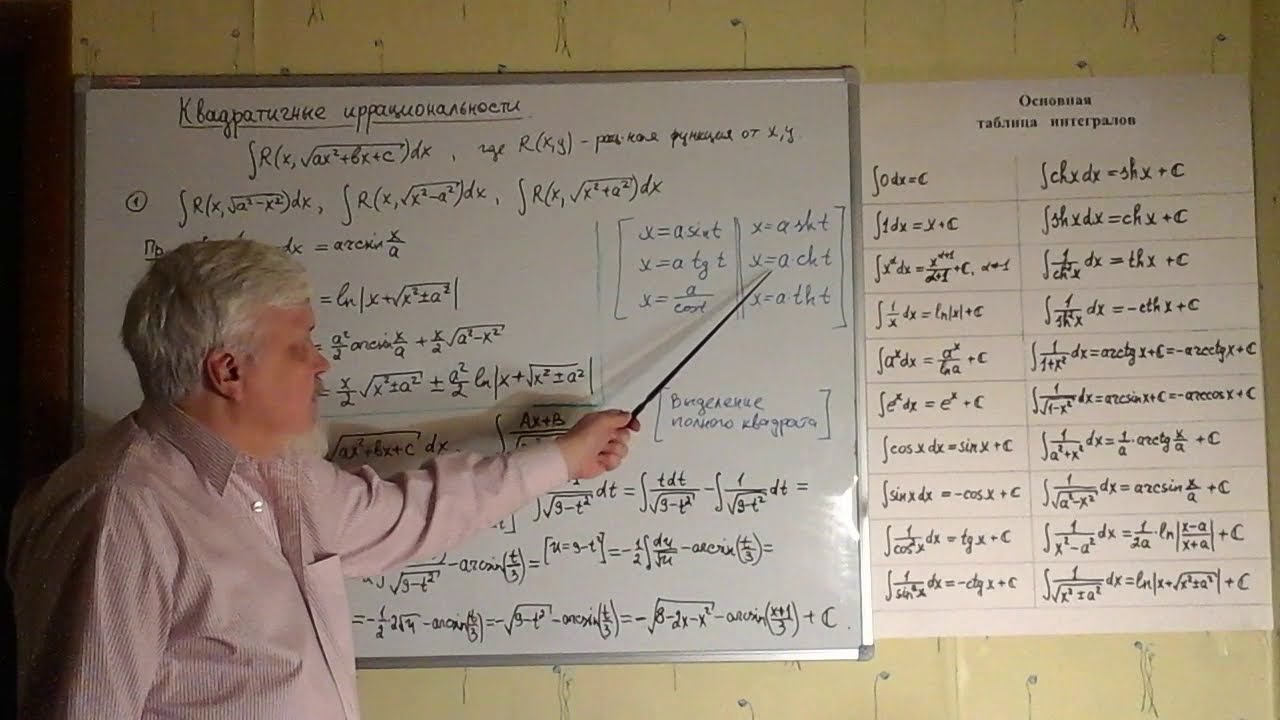 Квадратичные иррациональности.
∫R(x,√ax²+bx+c)dx , где R(x,y) – рац-ная функция от x,y.
① ∫R(x,√a²-x²)dx , ∫R(x,√x²-a²)dx , ∫R(x,√x²+a²)dx
dx = arcsin x/a
= ln|x+√x²±a²|
= a²/2 arcsin x/a + x/2 √a²-x²
= x/2 √x²±a² ± a²/2 ln|x+√x²±a²|
[ x=a sin t || x=a sh t ]
[ x=a tg t || x=a ch t ]
[ x= a/cos t || x=a·th t ]
√ax²+bx+c dx , ∫ Ax+B
[ Выделение
полного квадрата ]
√9-t² dt = ∫ tdt/√9-t² - ∫ 1/√9-t² dt =
√9-t² - arcsin(t/3) = [u=9-t²] = -1/2 ∫ du/√u - arcsin(t/3) =
= -1/2 2√u - arcsin(t/3) = -√9-t² - arcsin(t/3) = -√8-2x-x² - arcsin(x+1/3) + C .
Основная
таблица интегралов
∫0dx=C
∫chxdx=shx+C
∫1dx=x+C
∫shxdx=chx+C
∫x^α dx= x^(α+1)/α+1 +C, α≠-1
∫ 1/ch²x dx=thx+C
∫ 1/x dx=ln|x|+C
∫ 1/sh²x dx=-cthx+C
∫a^x dx= a^x/ln a +C
∫ 1/1+x² dx=arctgx+C=-arcctgx+C
∫e^x dx=e^x+C
∫ 1/√1-x² dx=arcsinx+C=-arccosx+C
∫cosxdx=sinx+C
∫ 1/a²+x² dx= 1/a·arctg x/a +C
∫sinxdx=-cosx+C
∫ 1/√a²-x² dx=arcsin x/a +C
∫ 1/cos²x dx=tgx+C
∫ 1/x²-a² dx= 1/2a·ln|x-a/x+a|+C
∫ 1/sin²x dx=-ctgx+C
∫ 1/√x²±a² dx=ln|x+√x²±a²|+C